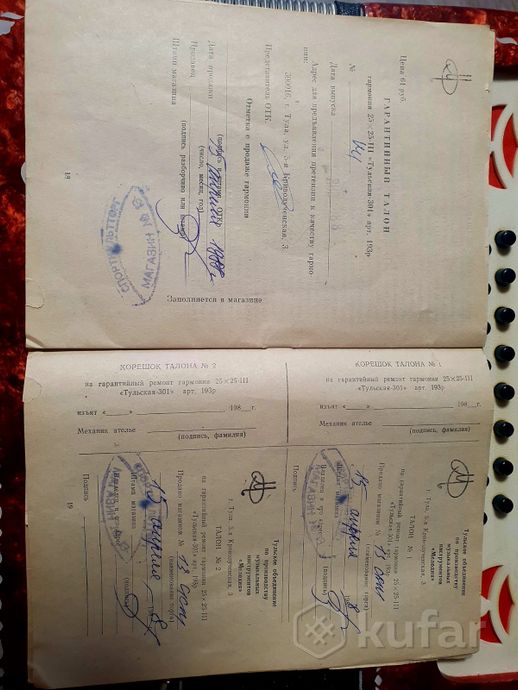 Цена 64 руб.
ГАРАНТИЙНЫЙ ТАЛОН
гармония 25×25-III «Тульская-301» арт. 193р
№
Дата выпуска
Адрес для предъявления претензии к качеству гармонии:
300016, г. Тула, ул. 5-я Криволученская, 3.
Представитель ОТК
Отметка о продаже гармонии
Дата продажи 15 апреля
(число, месяц, год)
Продавец
(подпись разборчиво или штамп)
Штамп магазина
СПОРТКУЛЬТТОРГ
МАГАЗИН №
Заполняется в магазине
18
КОРЕШОК ТАЛОНА № 2
на гарантийный ремонт гармонии 25×25-III
«Тульская-301» арт. 193р
изъят «___»__________198__г.
Механик ателье
(подпись, фамилия)
КОРЕШОК ТАЛОНА № 1
на гарантийный ремонт гармонии 25×25-III
«Тульская-301» арт. 193р
изъят «___»__________198__г.
Механик ателье
(подпись, фамилия)
Тульское объединение
по производству
музыкальных
инструментов
«Мелодия»
г. Тула, 5-я Криволученская, 3
ТАЛОН № 1
на гарантийный ремонт гармонии 25×25-III
«Тульская-301» арт. 193р
Продано магазином №
(наименование торга)
15 апреля
Штамп магазина
МАГАЗИН
(подпись)
Подпись
Тульское объединение
по производству
музыкальных
инструментов
«Мелодия»
г. Тула, 5-я Криволученская, 3
ТАЛОН № 2
на гарантийный ремонт гармонии 25×25-III
«Тульская-301» арт. 193р
Продано магазином №
(наименование торга)
15 апреля
Штамп магазина
МАГАЗИН
(подпись)
Подпись
19
kufar